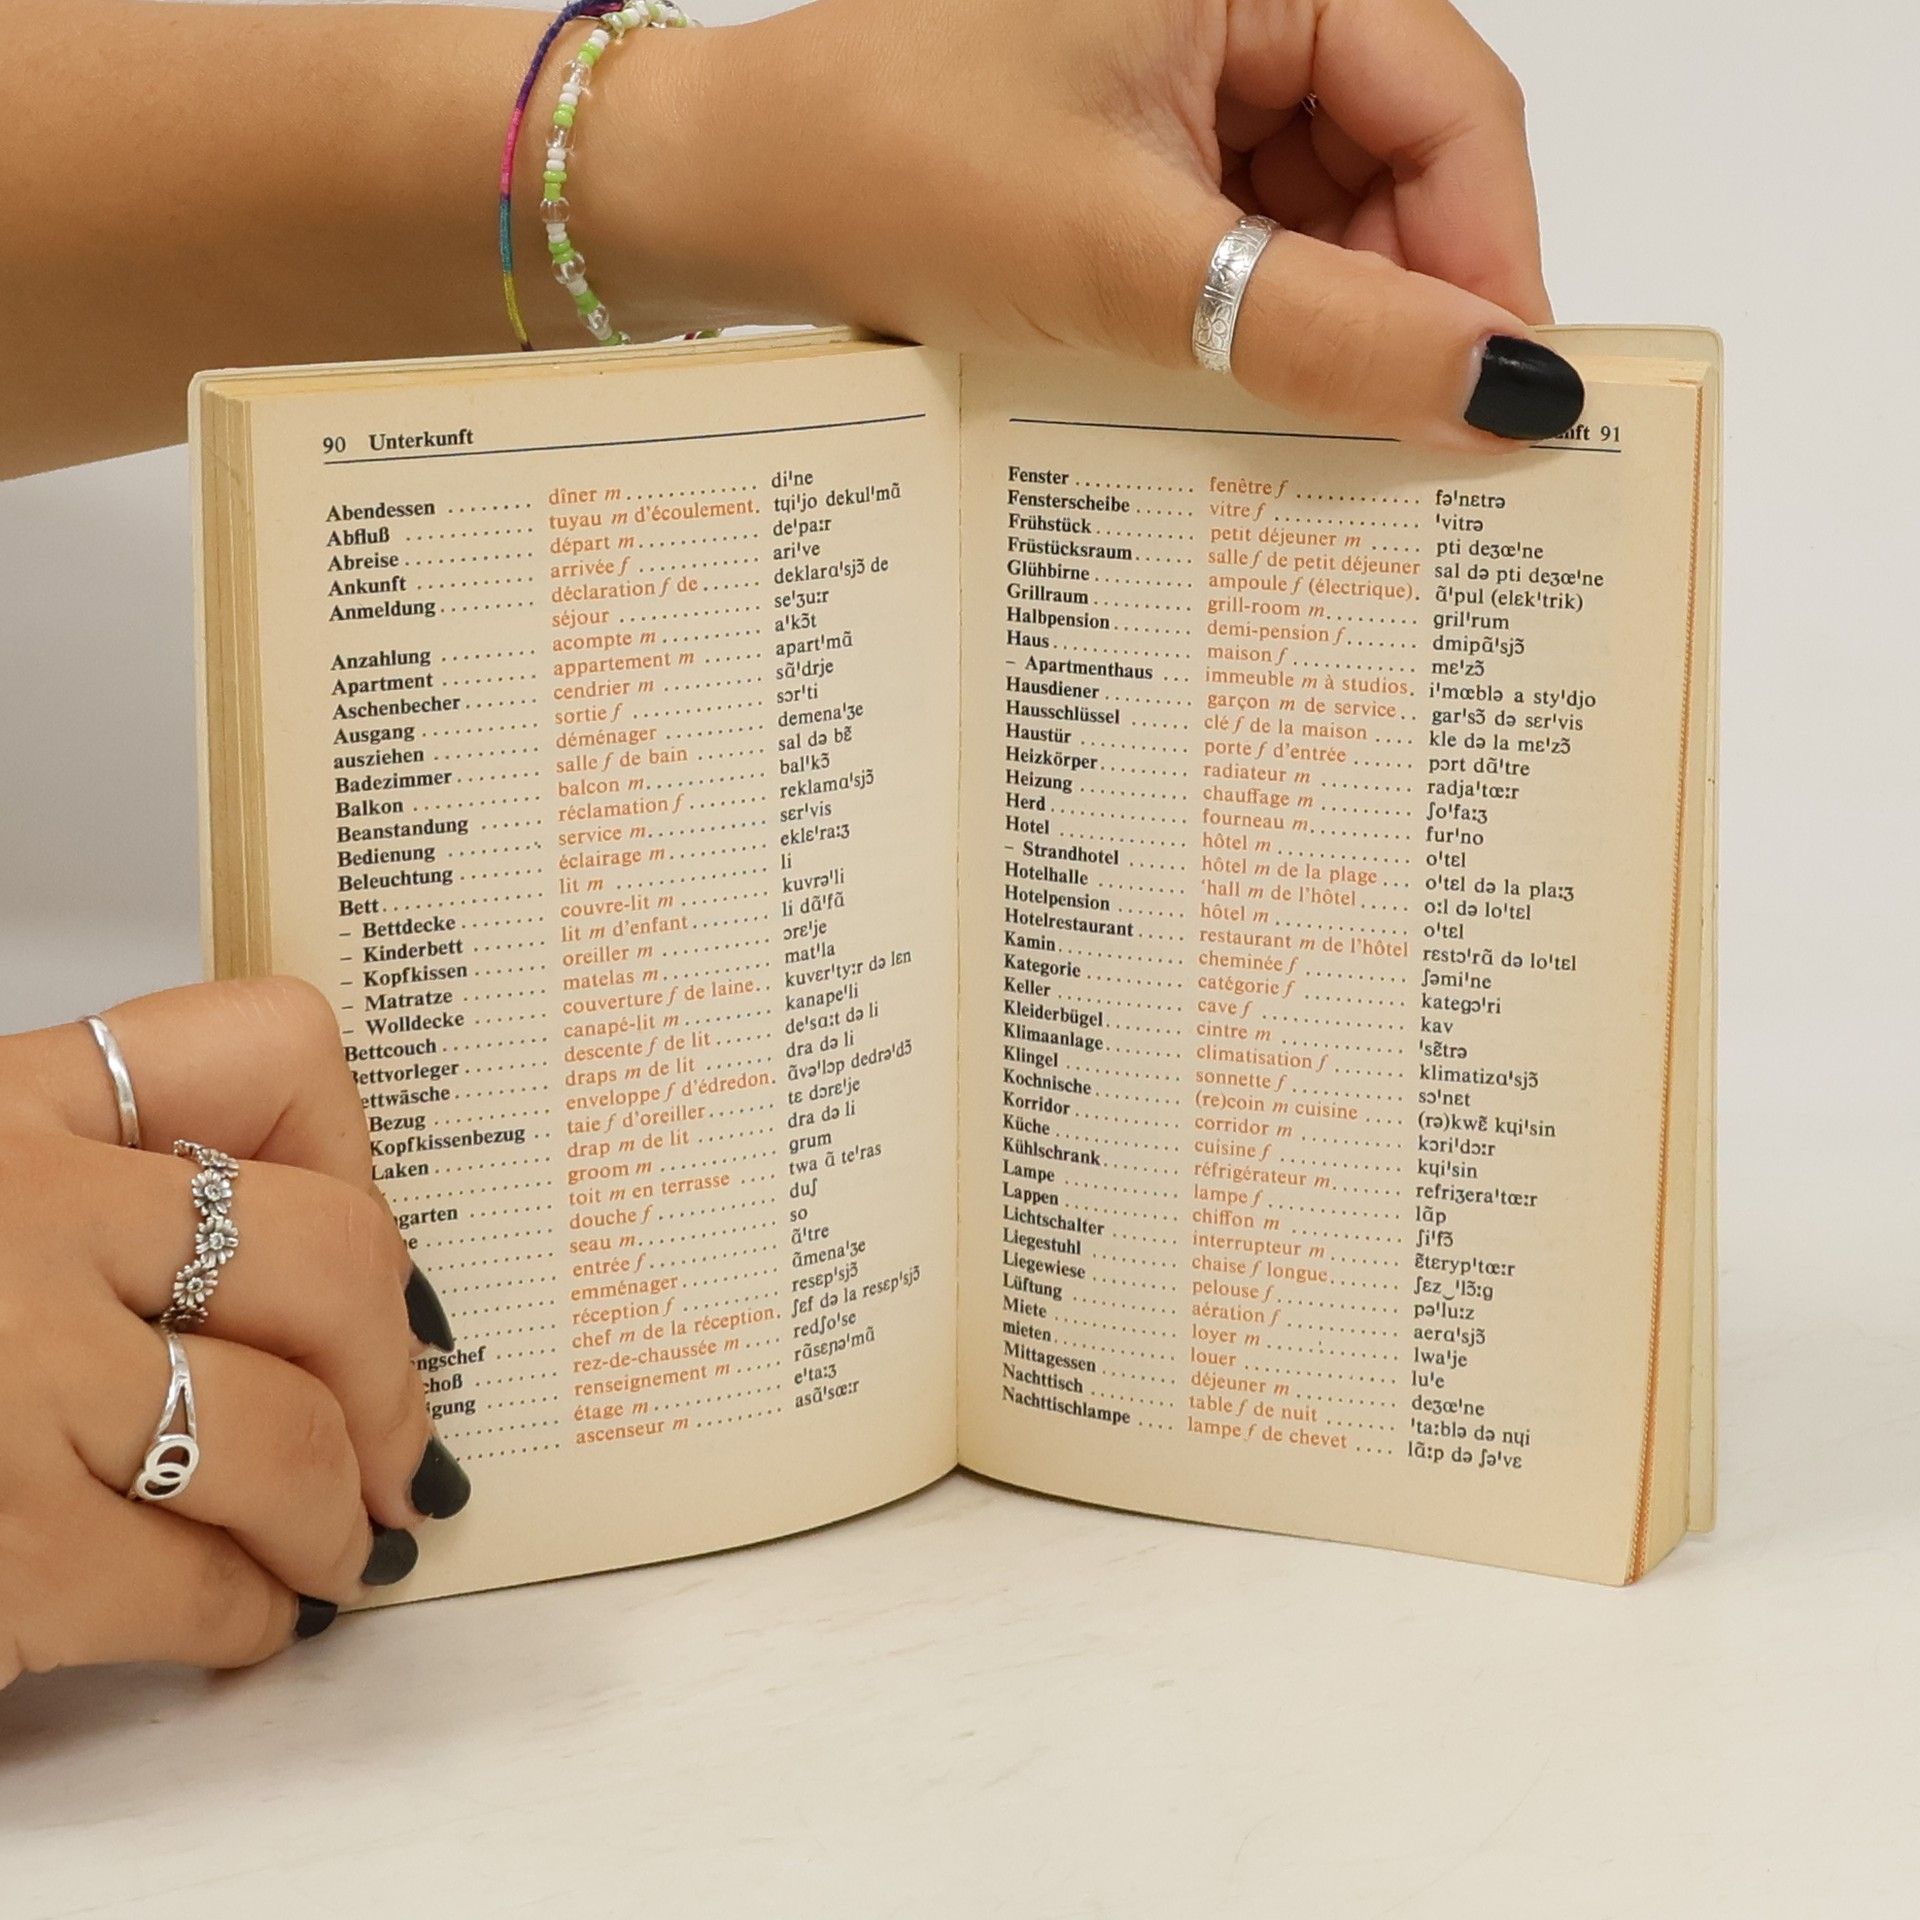 90 Unterkunft
Abendessen ........ dîner m ............. di'ne
Abfluß ........... tuyau m d'écoulement. tɥi'jo dekul'mɑ̃
Abreise ........... départ m ............ de'paːr
Ankunft ........... arrivée f ............ ari've
Anmeldung ......... déclaration f de ...... deklarɑ'sjɔ̃ de
séjour ............ se'ʒuːr
Anzahlung ......... acompte m .......... a'kɔ̃t
Apartment ......... appartement m ...... apart'mɑ̃
Aschenbecher ....... cendrier m .......... sɑ̃'drje
Ausgang ........... sortie f ............. sɔr'ti
ausziehen .......... déménager .......... demena'ʒe
Badezimmer ........ salle f de bain ....... sal də bɛ̃
Balkon ............ balcon m ............ bal'kɔ̃
Beanstandung ...... réclamation f ........ reklamɑ'sjɔ̃
Bedienung ......... service m ........... sɛr'vis
Beleuchtung ........ éclairage m .......... eklɛ'raːʒ
Bett ............... lit m .............. li
– Bettdecke ........ couvre-lit m ......... kuvrə'li
– Kinderbett ....... lit m d'enfant ........ li dɑ̃'fɑ̃
– Kopfkissen ....... oreiller m ........... ɔrɛ'je
– Matratze ........ matelas m ........... mat'la
– Wolldecke ....... couverture f de laine.. kuvɛr'tyːr də lɛn
Bettcouch .......... canapé-lit m ........ kanape'li
Bettvorleger ........ descente f de lit ...... de'sɑːt də li
ettwäsche .......... draps m de lit ....... dra də li
Bezug ............ enveloppe f d'édredon. ɑ̃və'lɔp dedrə'dɔ̃
Kopfkissenbezug .. taie f d'oreiller ....... tɛ dɔrɛ'je
Laken ............ drap m de lit ........ dra də li
............ groom m ............ grum
garten ........ toit m en terrasse .... twa ɑ̃ te'ras
e ............ douche f ............ duʃ
............ seau m ............. so
............ entrée f ............. ɑ̃'tre
............ emménager .......... ɑ̃mena'ʒe
............ réception f .......... resɛp'sjɔ̃
ngschef ...... chef m de la réception. ʃɛf də la resɛp'sjɔ̃
choß ........ rez-de-chaussée m .... redʃo'se
igung ....... renseignement m ..... rɑ̃sɛɲə'mɑ̃
............ étage m ............ e'taːʒ
............ ascenseur m ......... asɑ̃'sœːr
nft 91
Fenster ............ fenêtre f ............ fə'nɛtrə
Fensterscheibe ...... vitre f .............. 'vitrə
Frühstück .......... petit déjeuner m ..... pti deʒœ'ne
Früstücksraum ...... salle f de petit déjeuner sal də pti deʒœ'ne
Glühbirne .......... ampoule f (électrique). ɑ̃'pul (elɛk'trik)
Grillraum .......... grill-room m ......... gril'rum
Halbpension ........ demi-pension f ....... dmipɑ̃'sjɔ̃
Haus .............. maison f ............ mɛ'zɔ̃
– Apartmenthaus ... immeuble m à studios. i'mœblə a sty'djo
Hausdiener ......... garçon m de service .. gar'sɔ̃ də sɛr'vis
Hausschlüssel ...... clé f de la maison .... kle də la mɛ'zɔ̃
Haustür ........... porte f d'entrée ...... pɔrt dɑ̃'tre
Heizkörper ......... radiateur m ......... radja'tœːr
Heizung ........... chauffage m ......... ʃo'faːʒ
Herd .............. fourneau m .......... fur'no
Hotel ............. hôtel m ............. o'tɛl
– Strandhotel ...... hôtel m de la plage ... o'tɛl də la plaːʒ
Hotelhalle ......... 'hall m de l'hôtel ..... oːl də lo'tɛl
Hotelpension ....... hôtel m ............. o'tɛl
Hotelrestaurant ..... restaurant m de l'hôtel rɛstɔ'rɑ̃ də lo'tɛl
Kamin ............. cheminée f .......... ʃəmi'ne
Kategorie .......... catégorie f .......... kategɔ'ri
Keller ............. cave f .............. kav
Kleiderbügel ........ cintre m ............ 'sɛ̃trə
Klimaanlage ........ climatisation f ....... klimatizɑ'sjɔ̃
Klingel ............ sonnette f ........... sɔ'nɛt
Kochnische ......... (re)coin m cuisine .... (rə)kwɛ̃ kɥi'sin
Korridor ........... corridor m .......... kɔri'dɔːr
Küche ............. cuisine f ............ kɥi'sin
Kühlschrank ........ réfrigérateur m ....... refriʒera'tœːr
Lampe ............ lampe f ............. lɑ̃p
Lappen ............ chiffon m ........... ʃi'fɔ̃
Lichtschalter ........ interrupteur m ....... ɛ̃tɛryp'tœːr
Liegestuhl .......... chaise f longue ....... ʃɛz‿'lɔ̃ːg
Liegewiese .......... pelouse f ............ pə'luːz
Lüftung ........... aération f ........... aerɑ'sjɔ̃
Miete ............. loyer m ............. lwa'je
mieten ............. louer ............... lu'e
Mittagessen ........ déjeuner m .......... deʒœ'ne
Nachttisch ......... table f de nuit ....... 'taːblə də nɥi
Nachttischlampe .... lampe f de chevet .... lɑ̃ːp də ʃə'vɛ